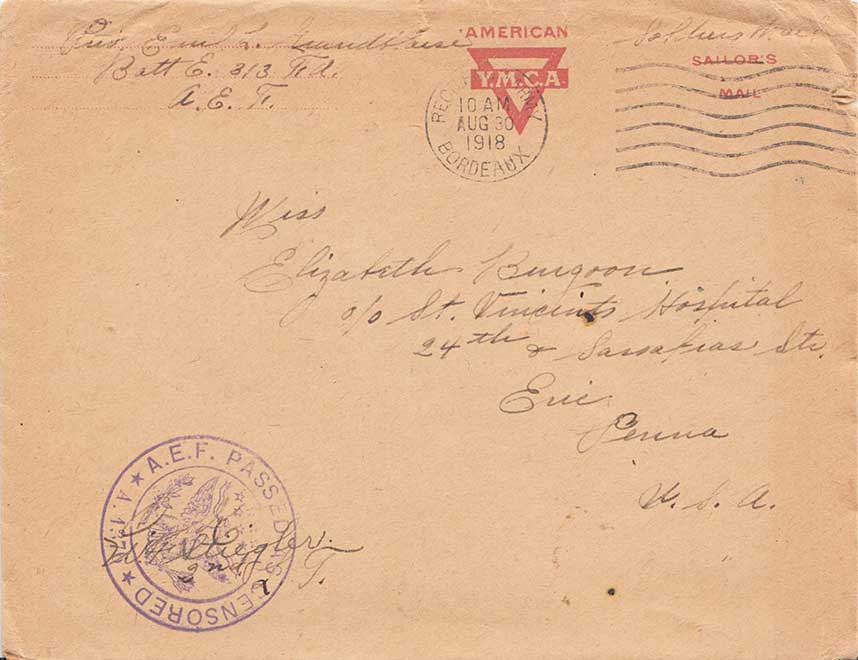 Priv. Emil L.
Batt E. 313 F.A.
A. E. F.
AMERICAN
Y.M.C.A.
Soldiers Mail
SAILOR'S
MAIL
10 AM
AUG 30
1918
BORDEAUX
Miss
Elizabeth Burgoon
c/o St. Vincints Hospital
24th & Sassafras Str.
Erie
Penna
U. S. A.
A.E.F. PASSED AS CENSORED
2nd Lt.